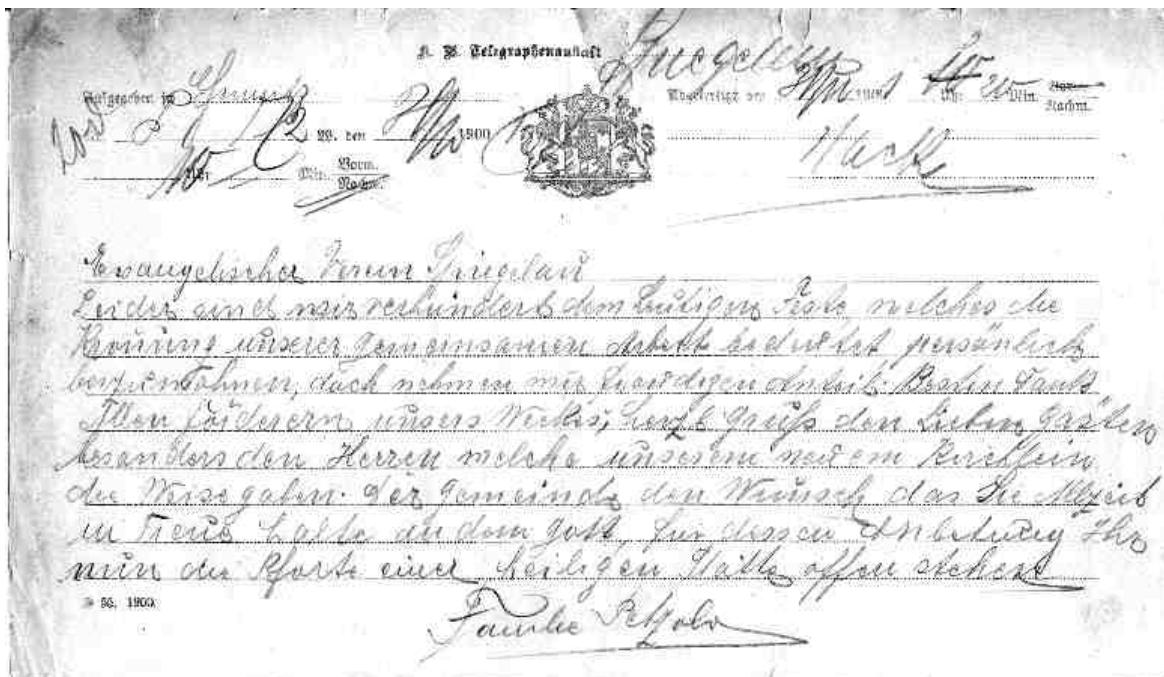 K. B. Telegraphenanstalt Spiegelau
Aufgegeben in Chemnitz
W. den 1900
Uhr Min. Vorm. Nachm.
Abgefertigt den Uhr Min. Vorm. Nachm.
Evangelischer Verein Spiegelau
Leider sind wir verhindert dem heutigen Feste, welches die
Krönung unserer gemeinsamen Arbeit bedeutet persönlich
beizuwohnen, doch nehmen wir freudigen Anteil. Besten Dank
Allen Förderern unsers Werkes, herzl. Gruß den Lieben Gästen
besonders den Herren welche unserem neuem Kirchlein
die Weise gaben. Der Gemeinde den Wunsch das Sie Allzeit
in Treue halte an dem Gott, für dessen Anbetung Ihr
nun die Pforte einer heiligen Stätte offen stehen
56. 1900.
Familie Petzold